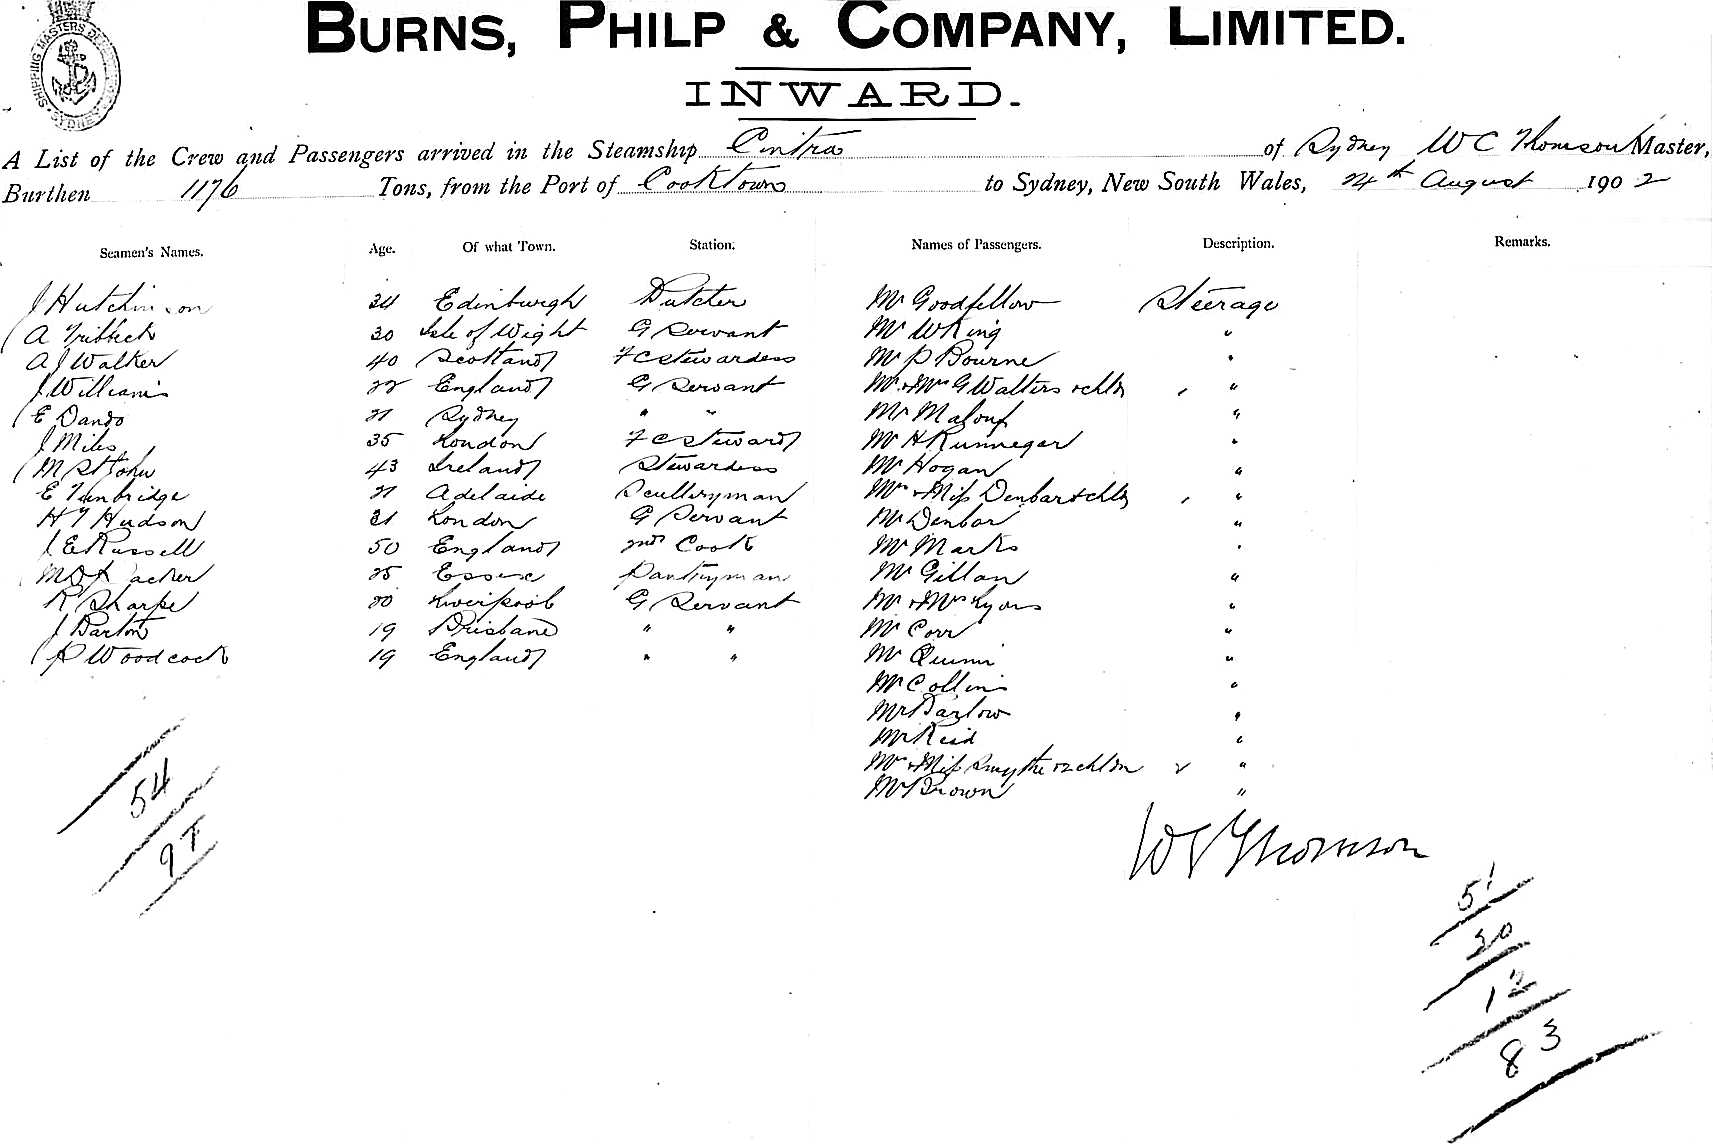 SHIPPING MASTERS
SYDNEY
BURNS, PHILP & COMPANY, LIMITED.
INWARD.
A List of the Crew and Passengers arrived in the Steamship Cintra of Sydney W C Thomson Master,
Burthen 1176 Tons, from the Port of Cooktown to Sydney, New South Wales, 24th August 1902
Seamen's Names. Age. Of what Town. Station. Names of Passengers. Description. Remarks.
J Hutchinson 34 Edinburgh Butcher Mr Goodfellow Steerage
A Tribbeck 30 Isle of Wight G Servant Mr W King "
A J Walker 40 Scotland F C Stewardess Mr P Bourne "
J Williams 22 England G Servant Mr & Mrs G Walters & chldn "
E Dando 21 Sydney " " Mr Malouf "
J Miles 35 London F C Steward Mr H Runnegar "
M St John 43 Ireland Stewardess Mr Hogan "
E Tunbridge 21 Adelaide Scullryman Mrs & Miss Denbar & chldn "
H T Hudson 31 London G Servant Mr Denbar "
J E Russell 50 England 2nd Cook Mr Marks "
25 Essex Pantryman Mr Gillan "
R Sharpe 20 Liverpool G Servant Mr & Mrs Lyons "
J Barton 19 Brisbane " " Mr Corr "
P Woodcock 19 England " " Mr Quinn "
Mr Collins "
Mr Barlow "
Mr Reid "
Mrs & Miss Smythe & 2 chldn 2 "
Mr Brown "
W C Thomson
54
97
51
20
12
83